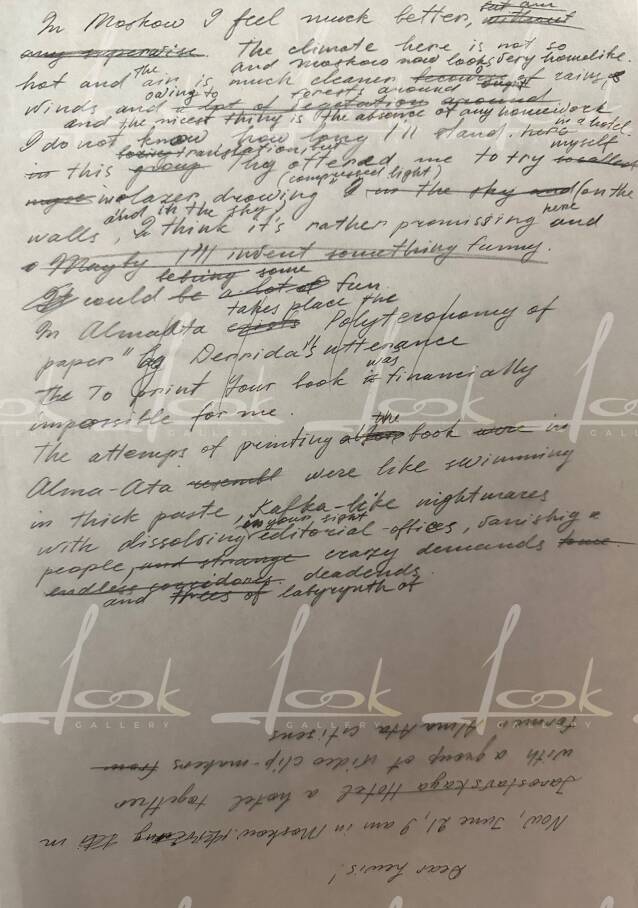 In Moskow I feel much better, but am
without
any superwise. The climate here is not so
hot and the air is much cleaner because of rains,
and moskow now looks very homelike.
owing to forests around
winds and a lot of vegetation around
and the nicest thing is the absence of any homework
I do not know how long I'll stand here in a hotel
in this group They offered me to try myself
(compressed light)
in lazer drowing I in the sky and (on the
walls, and in the sky, I think it's rather promissing here and
Mayby I'll invent something funny.
It could be a lot of fun.
bring some
In AlmaAta exists takes place the "Polyteconomy of
paper" by Derrida's utterance
The To print Your book is was financially
impossible for me.
The attemps of printing the book were in
Alma-Ata resembl were like swimming
in thick paste, Kafka-like nightmares
with dissolving in your sight editorial-offices, vanishig
people, and strange crazy demands
endless corridores. deadends.
and trees of labyrynth of
Dear Lewis!
Now, June 21, I am in Moskow, in
Jaroslavskaya Hotel a hotel together
with a group of video clip-makers from
former Alma Ata citisens
look
GALLERY
look
GALLERY